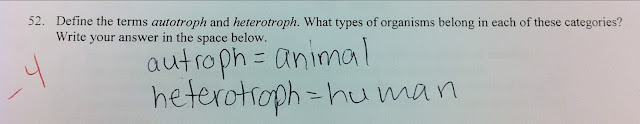 52. Define the terms autotroph and heterotroph. What types of organisms belong in each of these categories?
Write your answer in the space below.
-4
autroph = animal
heterotroph = human